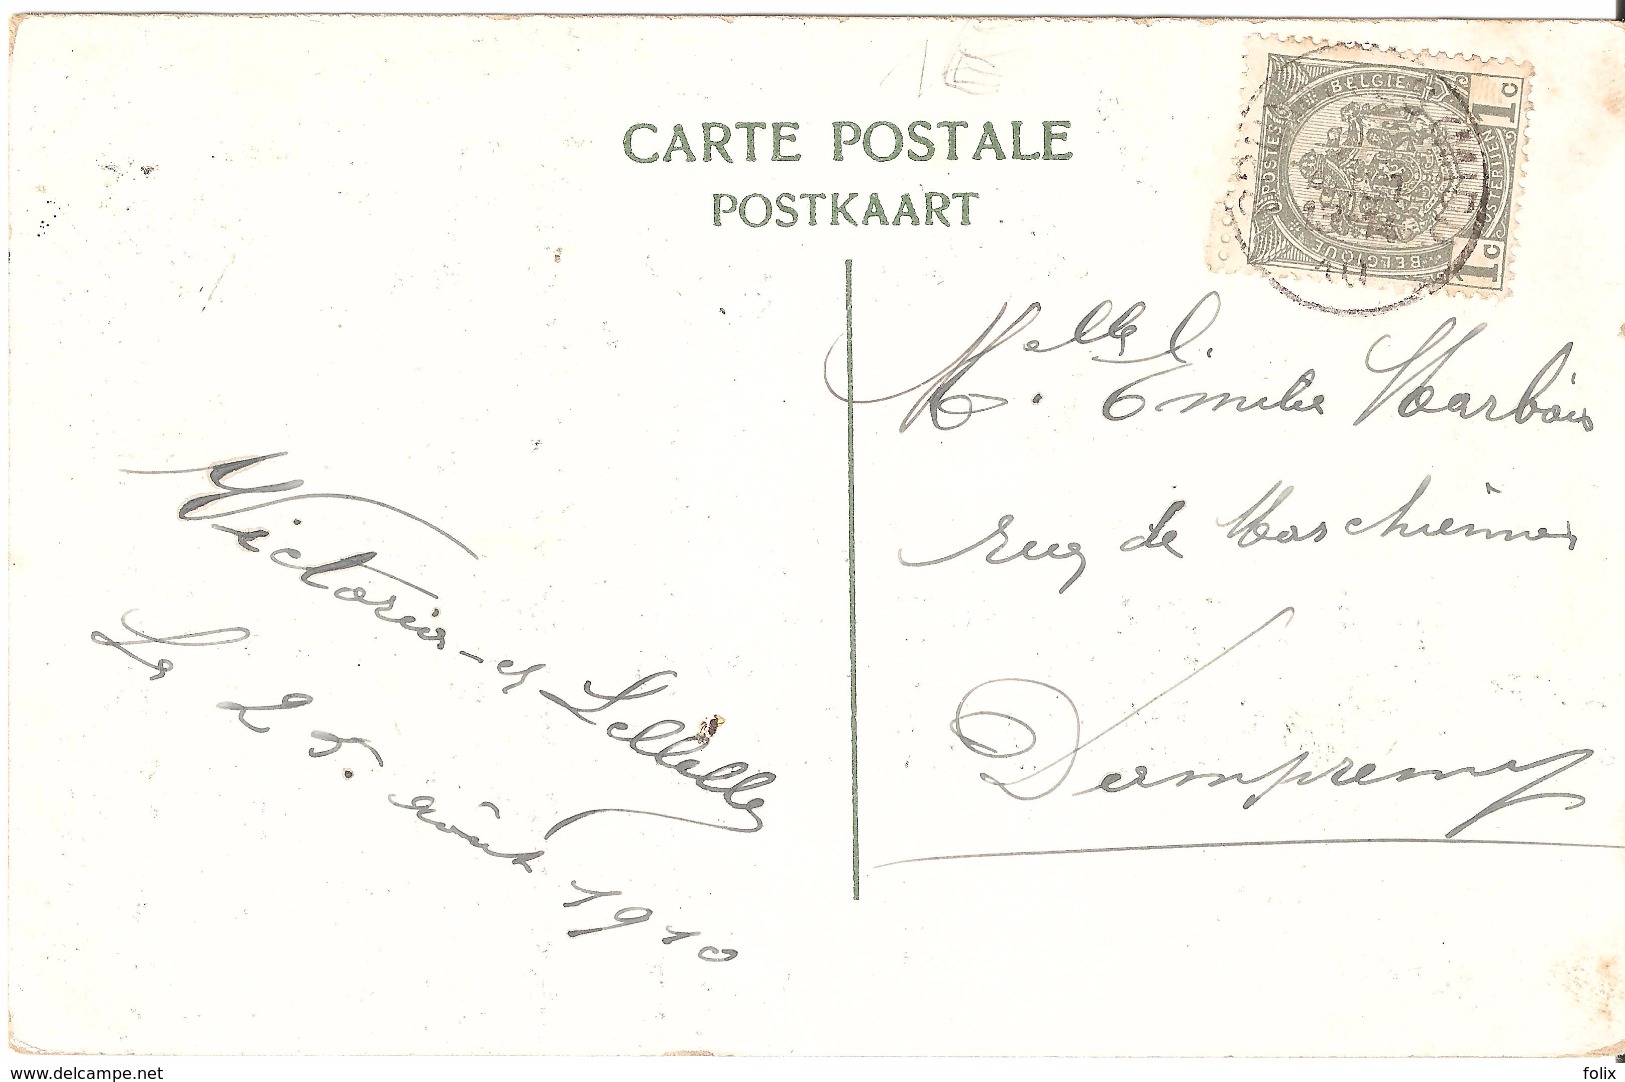 CARTE POSTALE
POSTKAART
BELGIE
POSTES
BELGIQUE
1c
1c
Melle
Emilie Marbaix
rue de Marchiennes
Dampremy
Victoria et
Le 25. Août 1910
www.delcampe.net
folix